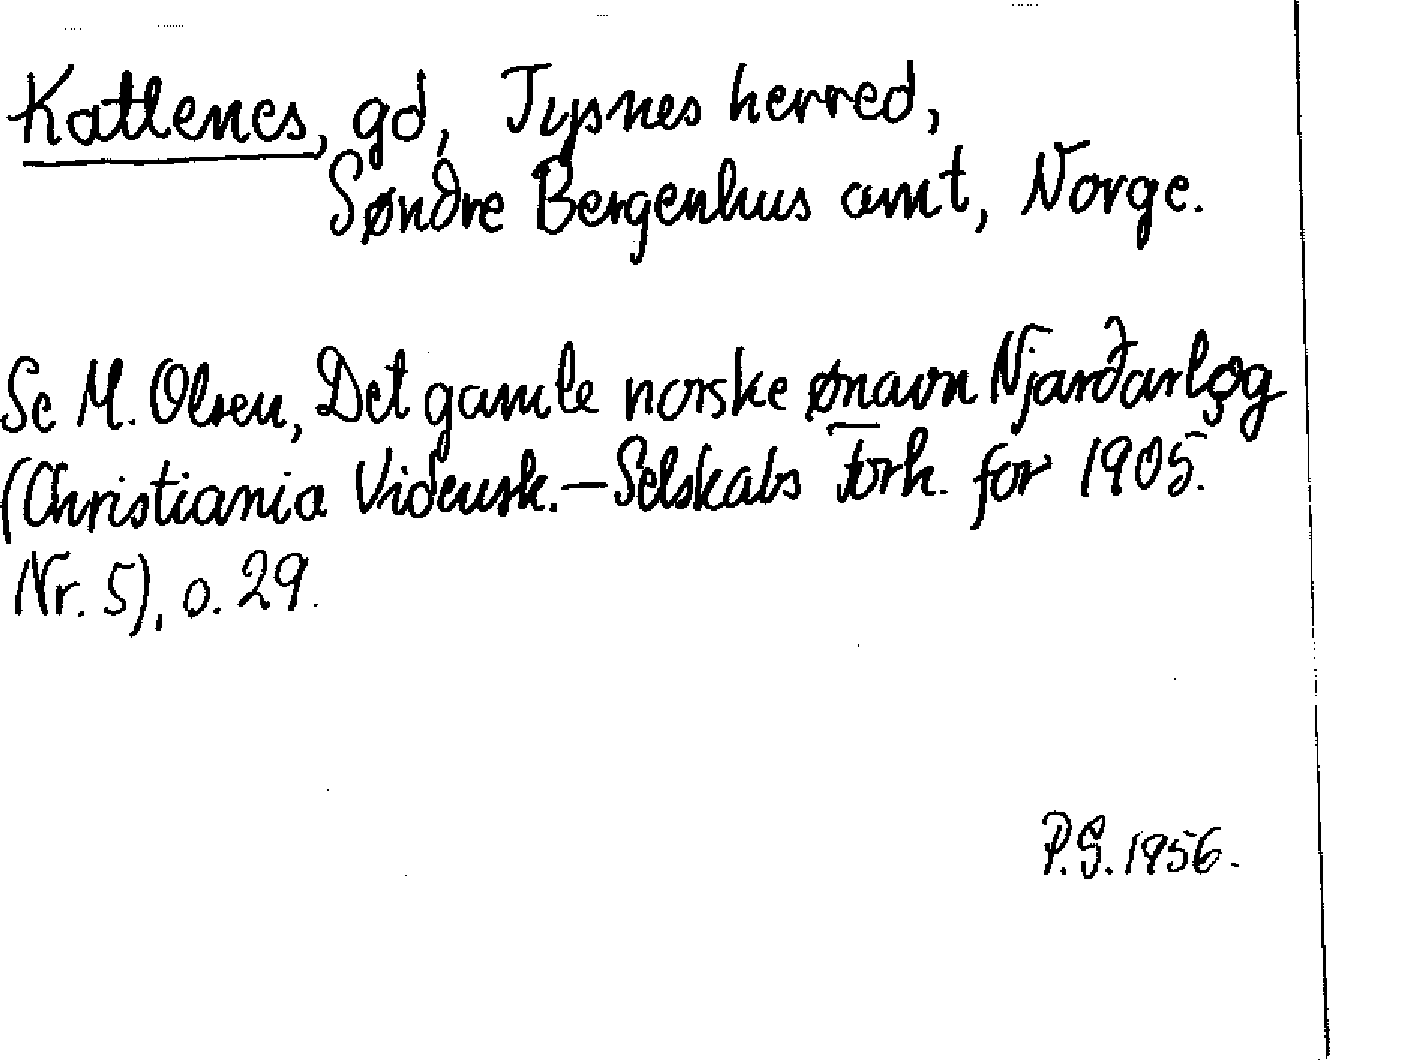 Kattenes, gd, Tysnes herred,
Søndre Bergenhus amt, Norge.
Se M. Olsen, Det gamle norske ønavn Njarðarlǫg
(Christiania Vidensk.-Selskabs Forh. for 1905.
Nr. 5), s. 29.
P.S. 1956.